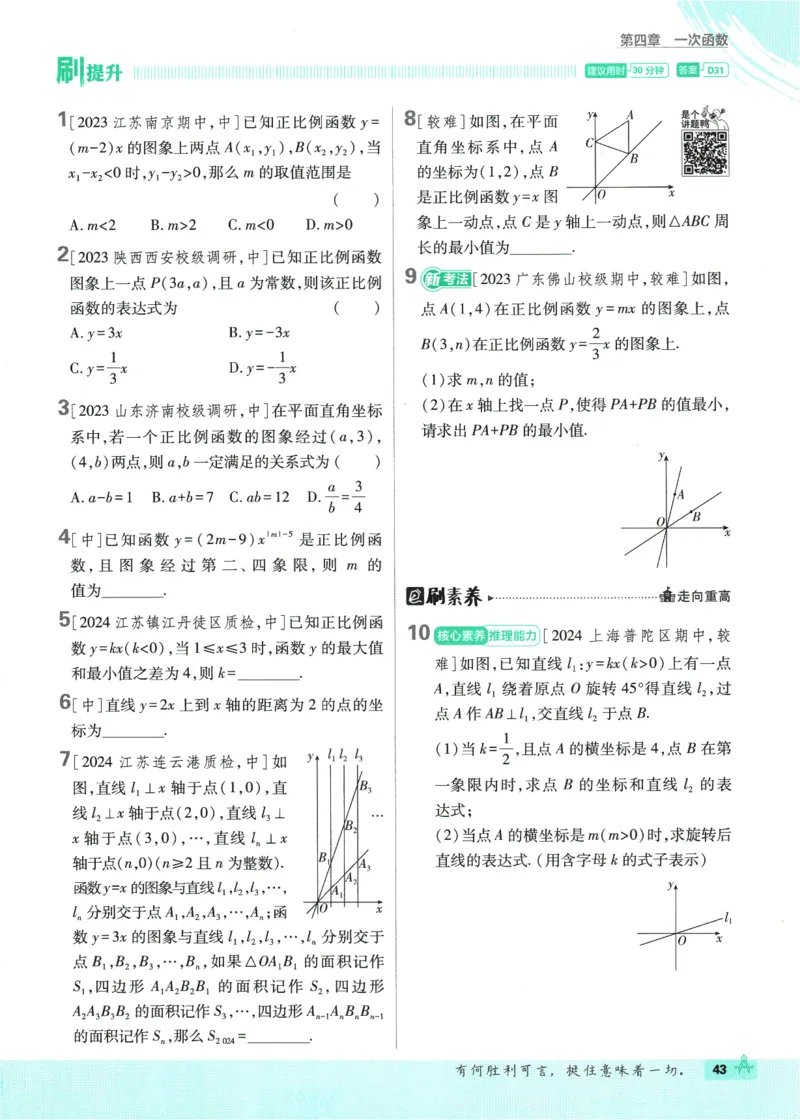 第四章 一次函数
刷提升
建议用时 30分钟 答案 D31
1[2023江苏南京期中,中]已知正比例函数 y=
(m-2)x的图象上两点A(x₁,y₁),B(x₂,y₂),当
x₁-x₂<0时,y₁-y₂>0,那么m的取值范围是
( )
A. m<2 B. m>2 C. m<0 D. m>0
2[2023陕西西安校级调研,中]已知正比例函数
图象上一点P(3a,a),且a为常数,则该正比例
函数的表达式为 ( )
A. y=3x B. y=-3x
C. y=1/3x D. y=-1/3x
3[2023山东济南校级调研,中]在平面直角坐标
系中,若一个正比例函数的图象经过(a,3),
(4,b)两点,则a,b一定满足的关系式为 ( )
A. a-b=1 B. a+b=7 C. ab=12 D. a/b=3/4
4[中]已知函数 y=(2m-9)x^{|m|-5} 是正比例函
数,且图象经过第二、四象限,则 m 的
值为______.
5[2024江苏镇江丹徒区质检,中]已知正比例函
数y=kx(k<0),当1≤x≤3时,函数y的最大值
和最小值之差为4,则k=______.
6[中]直线y=2x上到x轴的距离为2的点的坐
标为______.
7[2024江苏连云港质检,中]如
图,直线l₁⊥x轴于点(1,0),直
线l₂⊥x轴于点(2,0),直线l₃⊥
x轴于点(3,0),…,直线lₙ⊥x
轴于点(n,0)(n≥2且n为整数).
函数y=x的图象与直线l₁,l₂,l₃,…,
lₙ分别交于点A₁,A₂,A₃,…,Aₙ;函
数y=3x的图象与直线l₁,l₂,l₃,…,lₙ分别交于
点B₁,B₂,B₃,…,Bₙ,如果△OA₁B₁的面积记作
S₁,四边形A₁A₂B₂B₁的面积记作S₂,四边形
A₂A₃B₃B₂的面积记作S₃,…,四边形Aₙ₋₁AₙBₙBₙ₋₁
的面积记作Sₙ,那么S₂₀₂₄=______.
y l₁ l₂ l₃
B₃
…
B₂
B₁ A₃
A₂
A₁
O x
8[较难]如图,在平面
直角坐标系中,点A
的坐标为(1,2),点B
是正比例函数y=x图
象上一动点,点C是y轴上一动点,则△ABC周
长的最小值为______.
y A
C
B
O x
是个
讲题鸭
9 新考法[2023广东佛山校级期中,较难]如图,
点A(1,4)在正比例函数y=mx的图象上,点
B(3,n)在正比例函数y=2/3x的图象上.
(1)求m,n的值;
(2)在x轴上找一点P,使得PA+PB的值最小,
请求出PA+PB的最小值.
y
A
B
O
x
刷素养 走向重高
10 核心素养 推理能力[2024上海普陀区期中,较
难]如图,已知直线l₁:y=kx(k>0)上有一点
A,直线l₁绕着原点O旋转45°得直线l₂,过
点A作AB⊥l₁,交直线l₂于点B.
(1)当k=1/2,且点A的横坐标是4,点B在第
一象限内时,求点B的坐标和直线l₂的表
达式;
(2)当点A的横坐标是m(m>0)时,求旋转后
直线的表达式.(用含字母k的式子表示)
y
l₁
O x
有何胜利可言,挺住意味着一切. 43